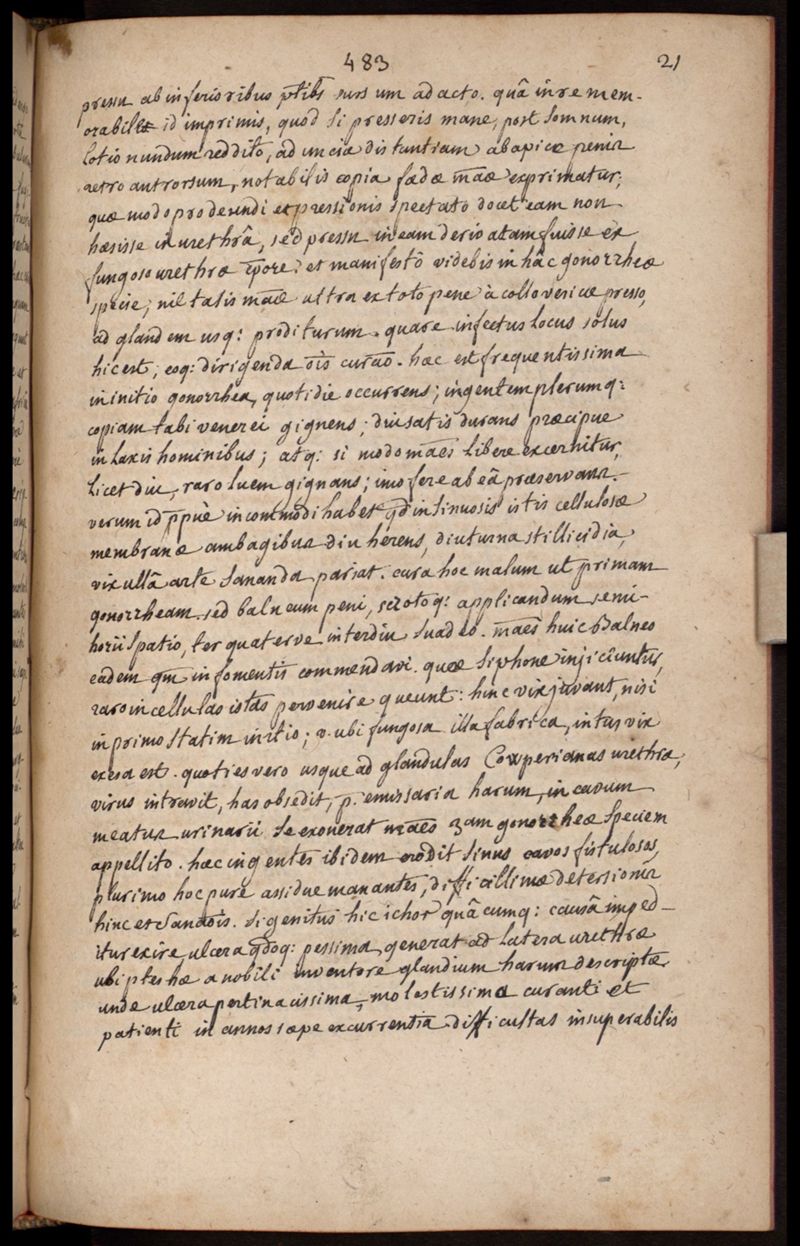 483 21
pressu ab inferioribus ptibs sursum ad acto. quâ in re mem-
orabile id imprimis, quod si presseris mane, post somnum,
lotio nundum reddito, ad uncia distantiam ab apice penis
retro antrorsum, notabilis copia fædæ māæ exprimatur,
quæ modo prodeundi expressionis spectato docet eam non
hæsisse in urethrâ, sed pressu in eam derivatam fuisse ex
fungoso urethræ cpore: et manifestô videbis in hâc gonorrheæ
specie, nil talis māæ ultra ex toto pene à collo vesicæ presso,
ad glandem usq: proditurum. quare infectus locus solus
hic est, eoq: dirigenda oīs curāo. hæc est frequentissima
in initio gonorrhea, quotidie occurrens; ingentem plerumq:
copiam tabi venerei gignens; diu satis durans præcipue
in laxis hominibus; atq: si modo māes libere excernitur,
licet diu, raro luem gignans; imo fere ab eâ præservans.
verum id ppuè incommodi habet qd in sinuosis istis cellulosæ
membranæ ambagibus diu hêrens, diuturna stillicidia,
vix ullâ arte sananda pariat. cura hoc malum ut primam
gonorrheam. sed balneum peni, scrotoq: applicandum semi-
horii spatio, ter quaterve interdiu suadeo. māes huic Balneo
eadem qm in fomentis commendavi. quæ siphone injiciuntur,
raro in cellulas istas pervenire queunt: hinc vix juvant, nisi
in primo statim initio; v. ubi fungosa illa fabrica, intus vix
exesa est. quoties vero usque ad glandulas Cowperianas urethræ,
virus intravit, has obsedit, p. emissaria harum, in cavum
meatus urinarii se exonerat māes 3am gonorrheæ speciem
appellito. hæc ingentes ibidem erodit sinus cavos fistulosos,
plurimo hoc pure assidue manantes, difficillimæ detersionis
hinc et sanaōis. si genitus hic ichor quâcumq: causâ imped-
itur exire, ulcera qdoq: pessima, generat ad latera urethræ
ubi ptes hæ a nobili inventore glandium harum descriptæ
unde ulcera pertinacissima, molestissima curanti et
patienti in annos sæpe excurrentia difficultas insuperabilis